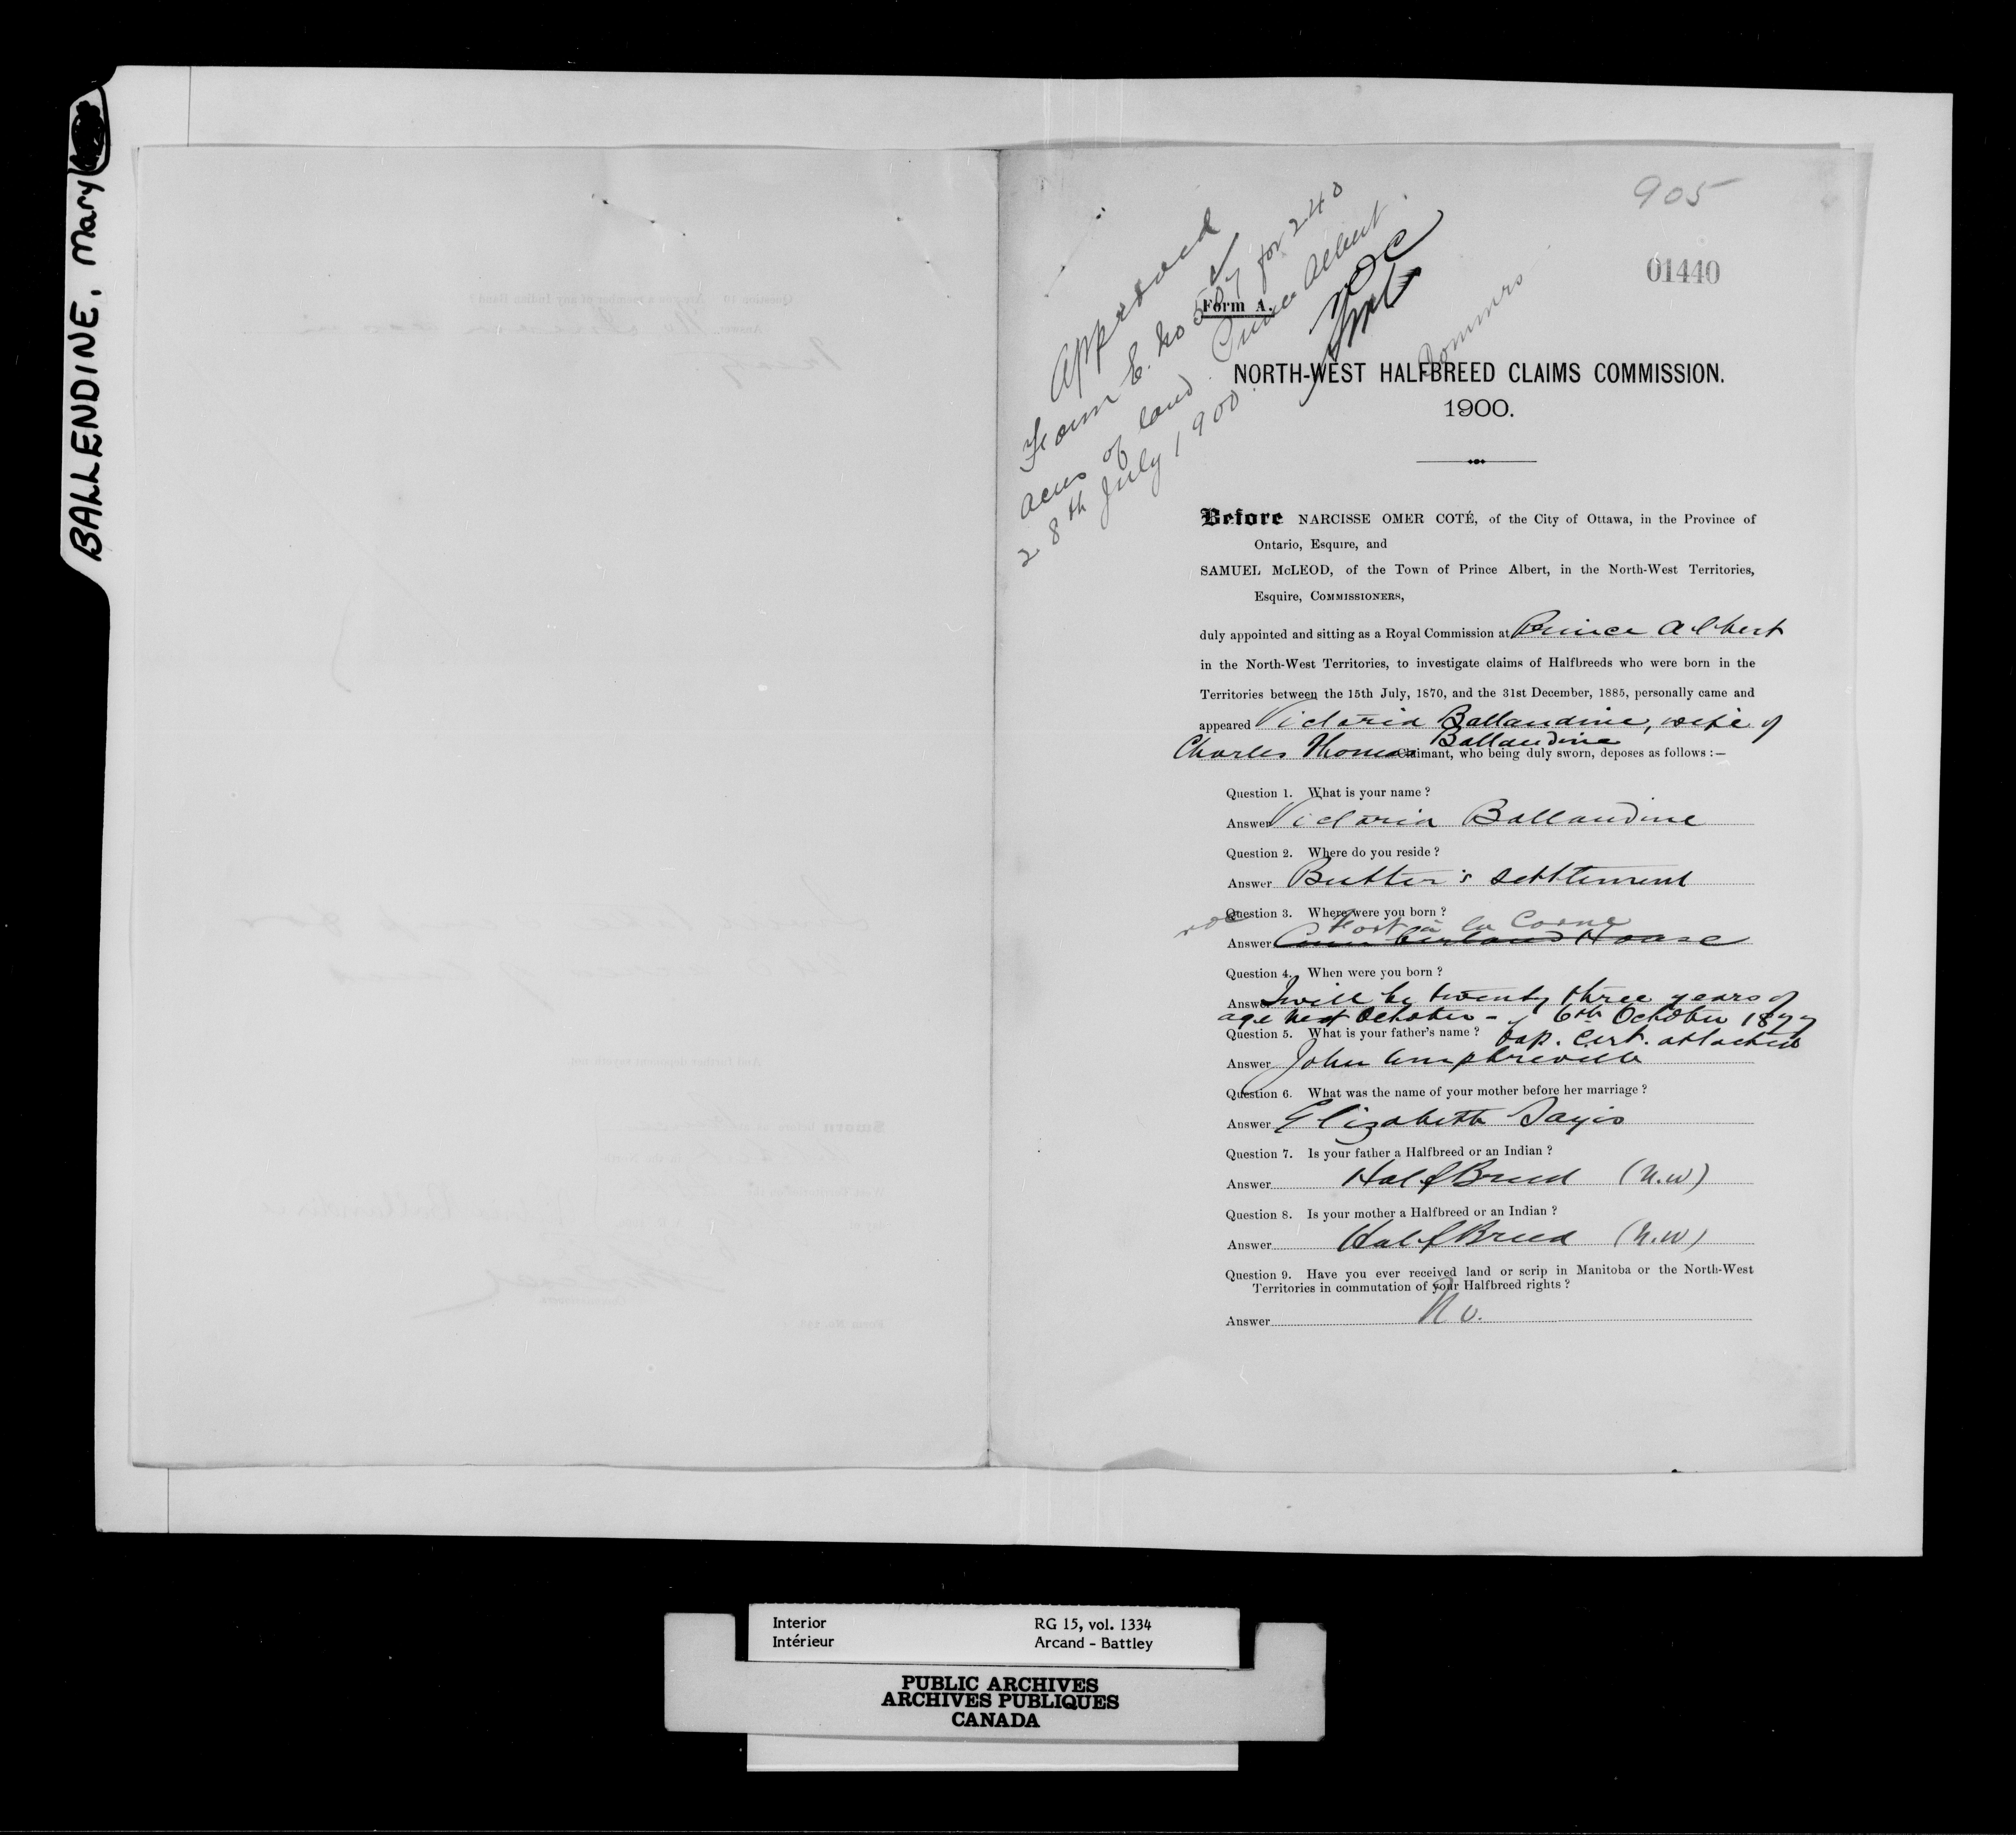 BALLENDINE, Mary
905
01440
Approved
Form E. No 507 for 240
acres of land. Prince Albert
28th July 1900.
NOC
Form A.
NORTH-WEST HALFBREED CLAIMS COMMISSION.
1900.
Before NARCISSE OMER COTÉ, of the City of Ottawa, in the Province of
Ontario, Esquire, and
SAMUEL McLEOD, of the Town of Prince Albert, in the North-West Territories,
Esquire, COMMISSIONERS,
duly appointed and sitting as a Royal Commission at Prince Albert
in the North-West Territories, to investigate claims of Halfbreeds who were born in the
Territories between the 15th July, 1870, and the 31st December, 1885, personally came and
appeared Victoria Ballandine, wife of
Charles Thomas Ballandine
Claimant, who being duly sworn, deposes as follows :—
Question 1. What is your name ?
Answer Victoria Ballandine
Question 2. Where do you reside ?
Answer Butter's Settlement
Question 3. Where were you born ?
noc Fort à la Corne
Answer Cumberland House
Question 4. When were you born ?
Answer I will be twenty three years of
age next October - 6th October 1877
Question 5. What is your father's name ? bap. cert. attached
Answer John Umphreville
Question 6. What was the name of your mother before her marriage ?
Answer Elizabeth Sayis
Question 7. Is your father a Halfbreed or an Indian ?
Answer HalfBreed (N.W)
Question 8. Is your mother a Halfbreed or an Indian ?
Answer HalfBreed (N.W)
Question 9. Have you ever received land or scrip in Manitoba or the North-West
Territories in commutation of your Halfbreed rights ?
Answer No.
Interior RG 15, vol. 1334
Intérieur Arcand - Battley
PUBLIC ARCHIVES
ARCHIVES PUBLIQUES
CANADA